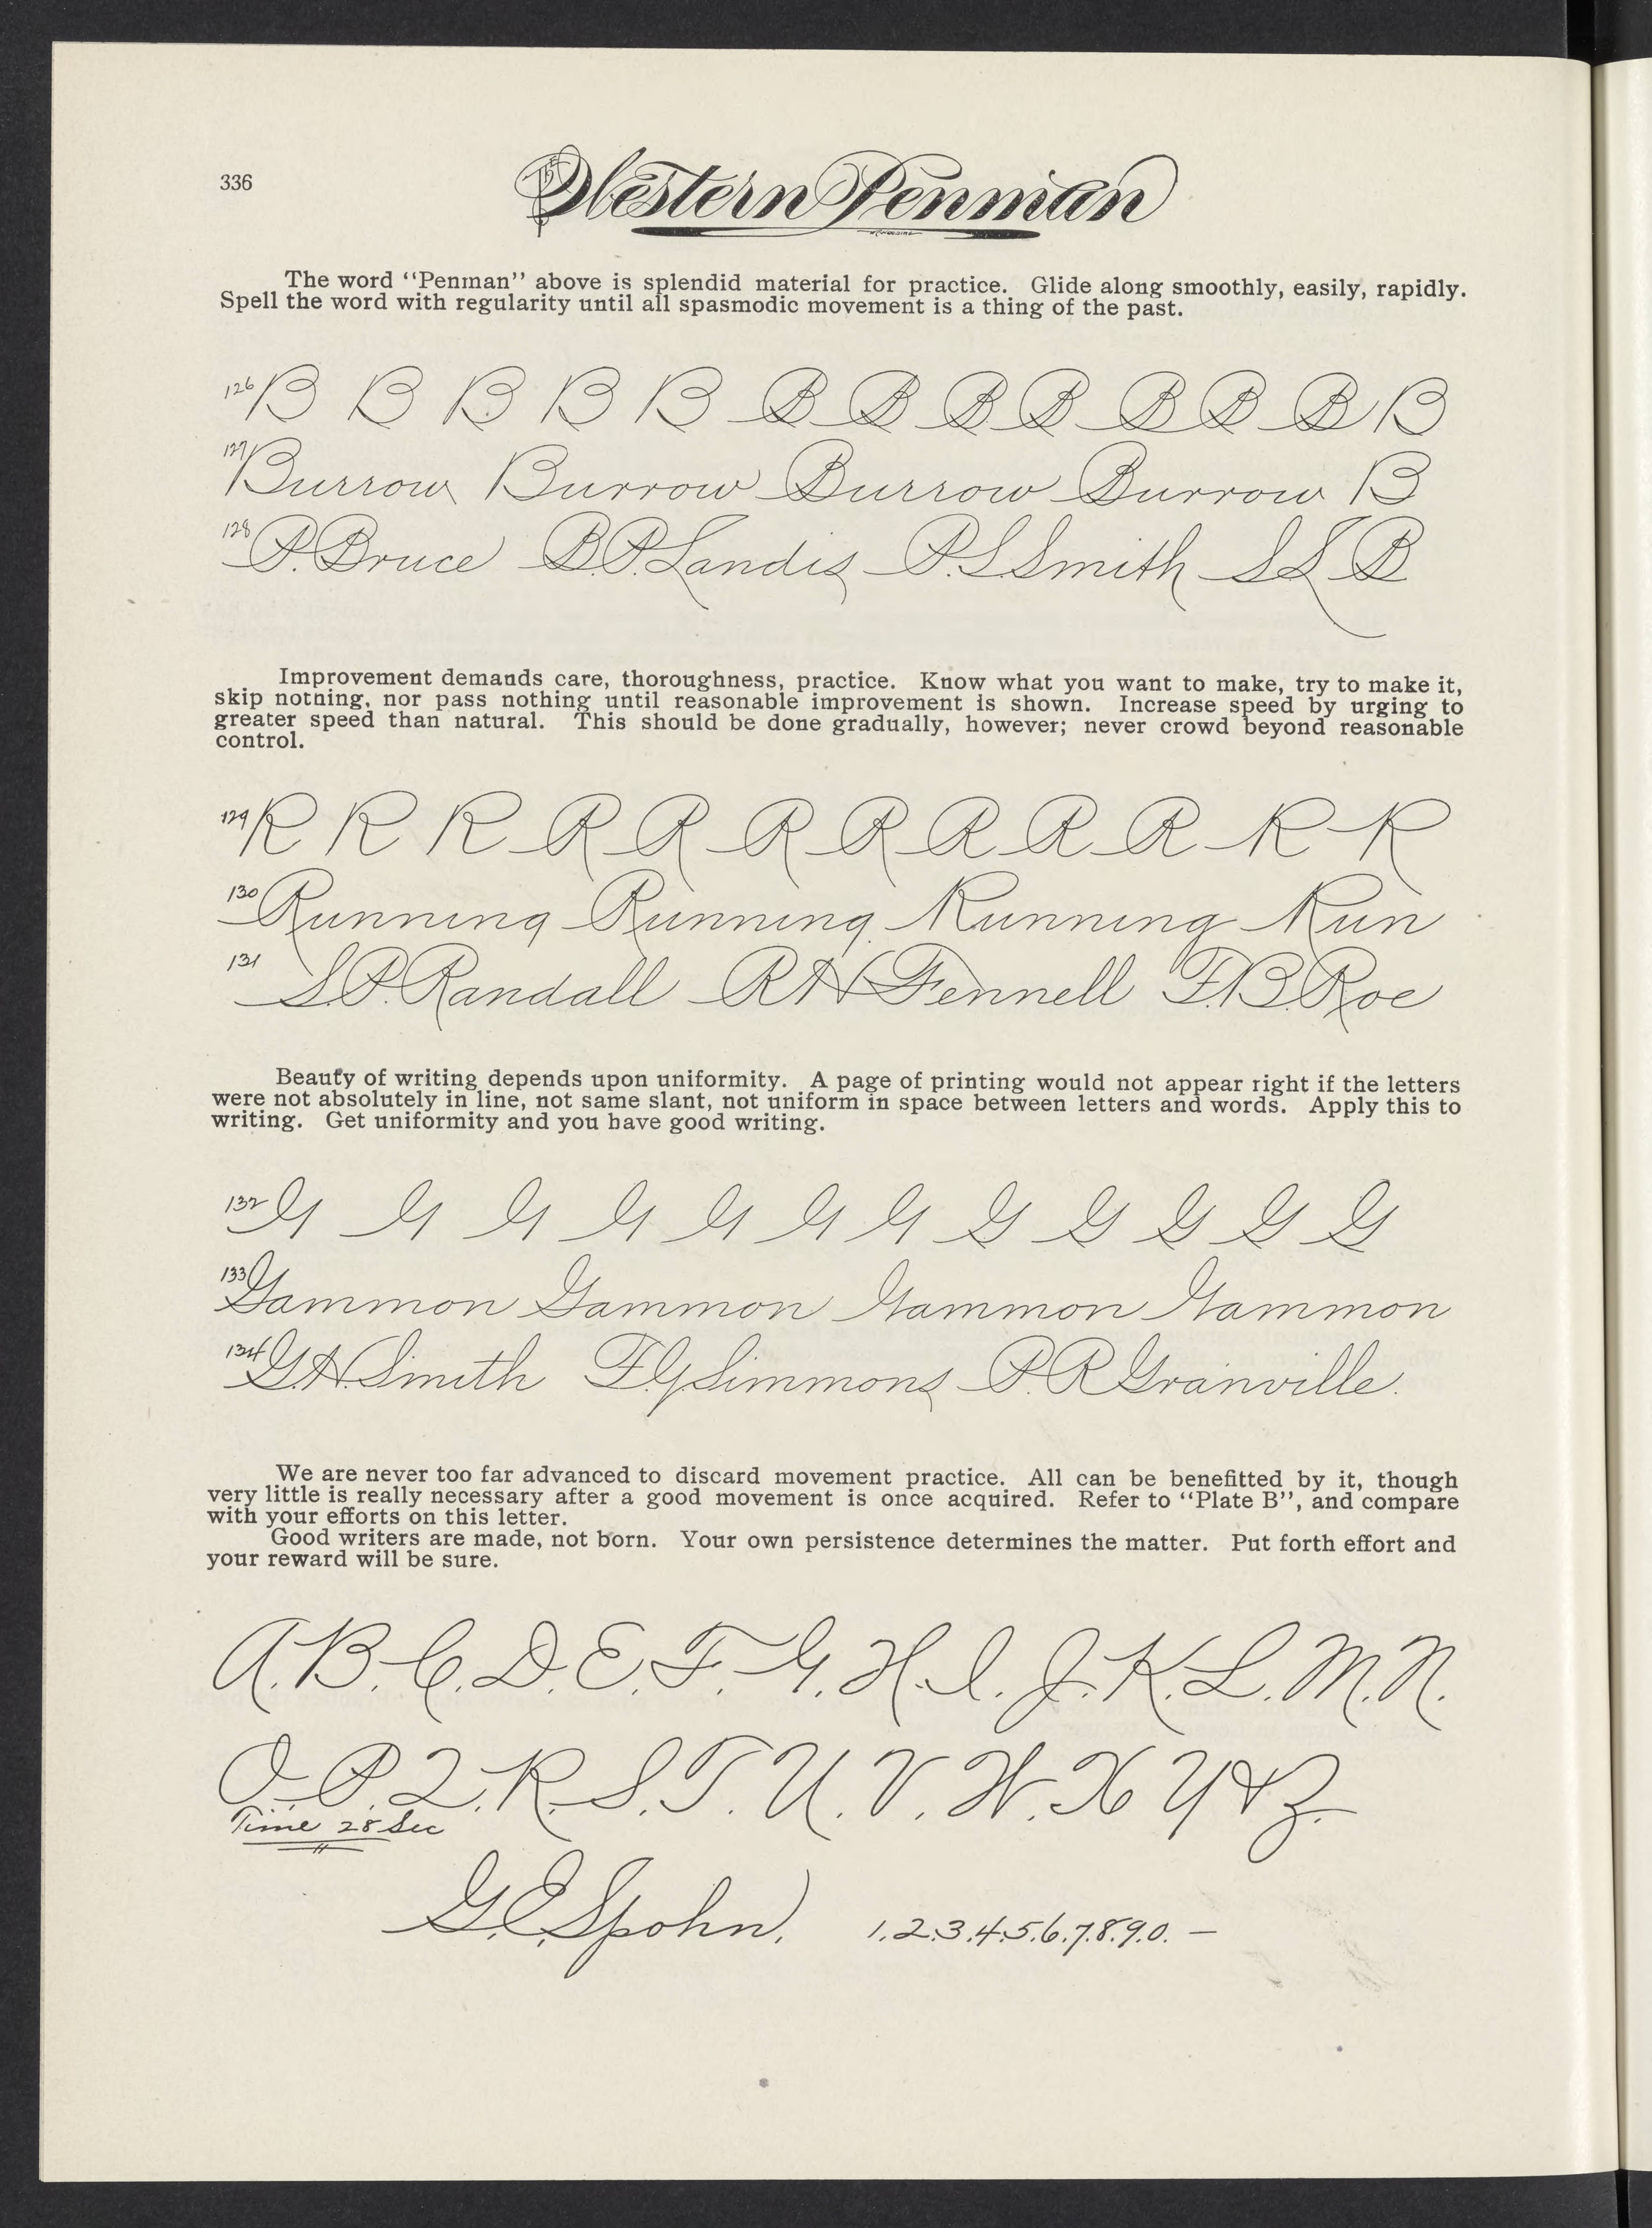 336
Western Penman
The word “Penman” above is splendid material for practice. Glide along smoothly, easily, rapidly.
Spell the word with regularity until all spasmodic movement is a thing of the past.
126 B B B B B B B B B B B B B
127 Burrow Burrow Burrow Burrow B
128 P. Bruce B. P. Landis P. S. Smith S L B
Improvement demands care, thoroughness, practice. Know what you want to make, try to make it,
skip nothing, nor pass nothing until reasonable improvement is shown. Increase speed by urging to
greater speed than natural. This should be done gradually, however; never crowd beyond reasonable
control.
129 R R R R R R R R R R R R
130 Running Running Running Run
131 S. P. Randall R H Fennell F. B. Roe
Beauty of writing depends upon uniformity. A page of printing would not appear right if the letters
were not absolutely in line, not same slant, not uniform in space between letters and words. Apply this to
writing. Get uniformity and you have good writing.
132 G G G G G G G G G G G G
133 Gammon Gammon Gammon Gammon
134 G. H. Smith F. G. Simmons P. R. Granville.
We are never too far advanced to discard movement practice. All can be benefitted by it, though
very little is really necessary after a good movement is once acquired. Refer to “Plate B”, and compare
with your efforts on this letter.
Good writers are made, not born. Your own persistence determines the matter. Put forth effort and
your reward will be sure.
A. B. C. D. E. F. G. H. I. J. K. L. M. N.
O. P. Q. R. S. T. U. V. W. X Y & Z.
Time 28 Sec
G. E. Spohn. 1. 2. 3. 4. 5. 6. 7. 8. 9. 0. —